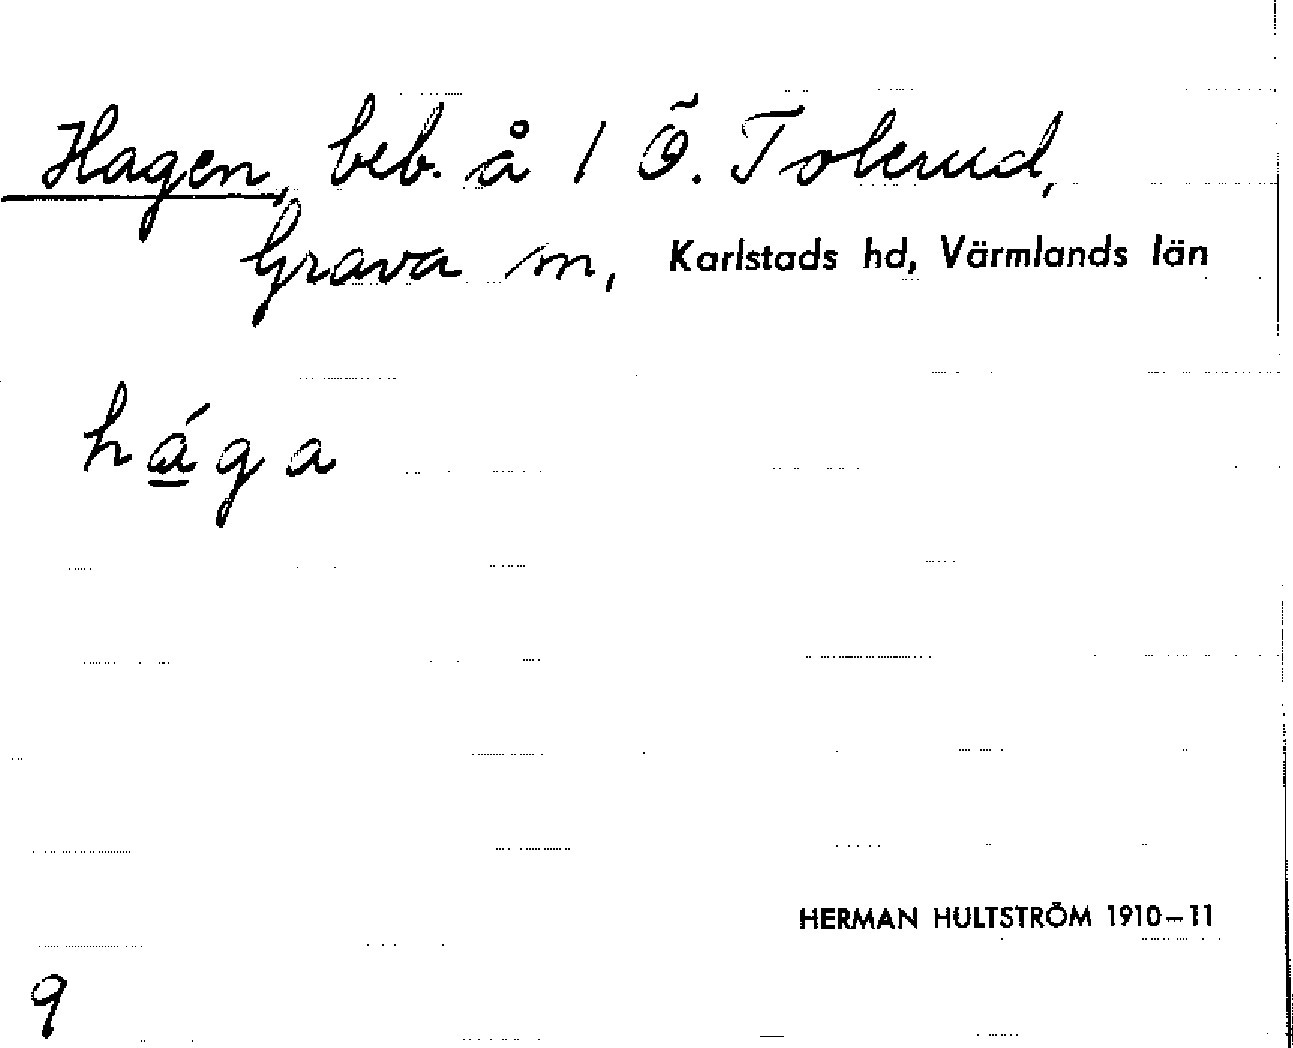 Hagen, beb. å 1 Ö. Tolerud,
Grava sn, Karlstads hd, Värmlands län
hága
HERMAN HULTSTRÖM 1910–11
9